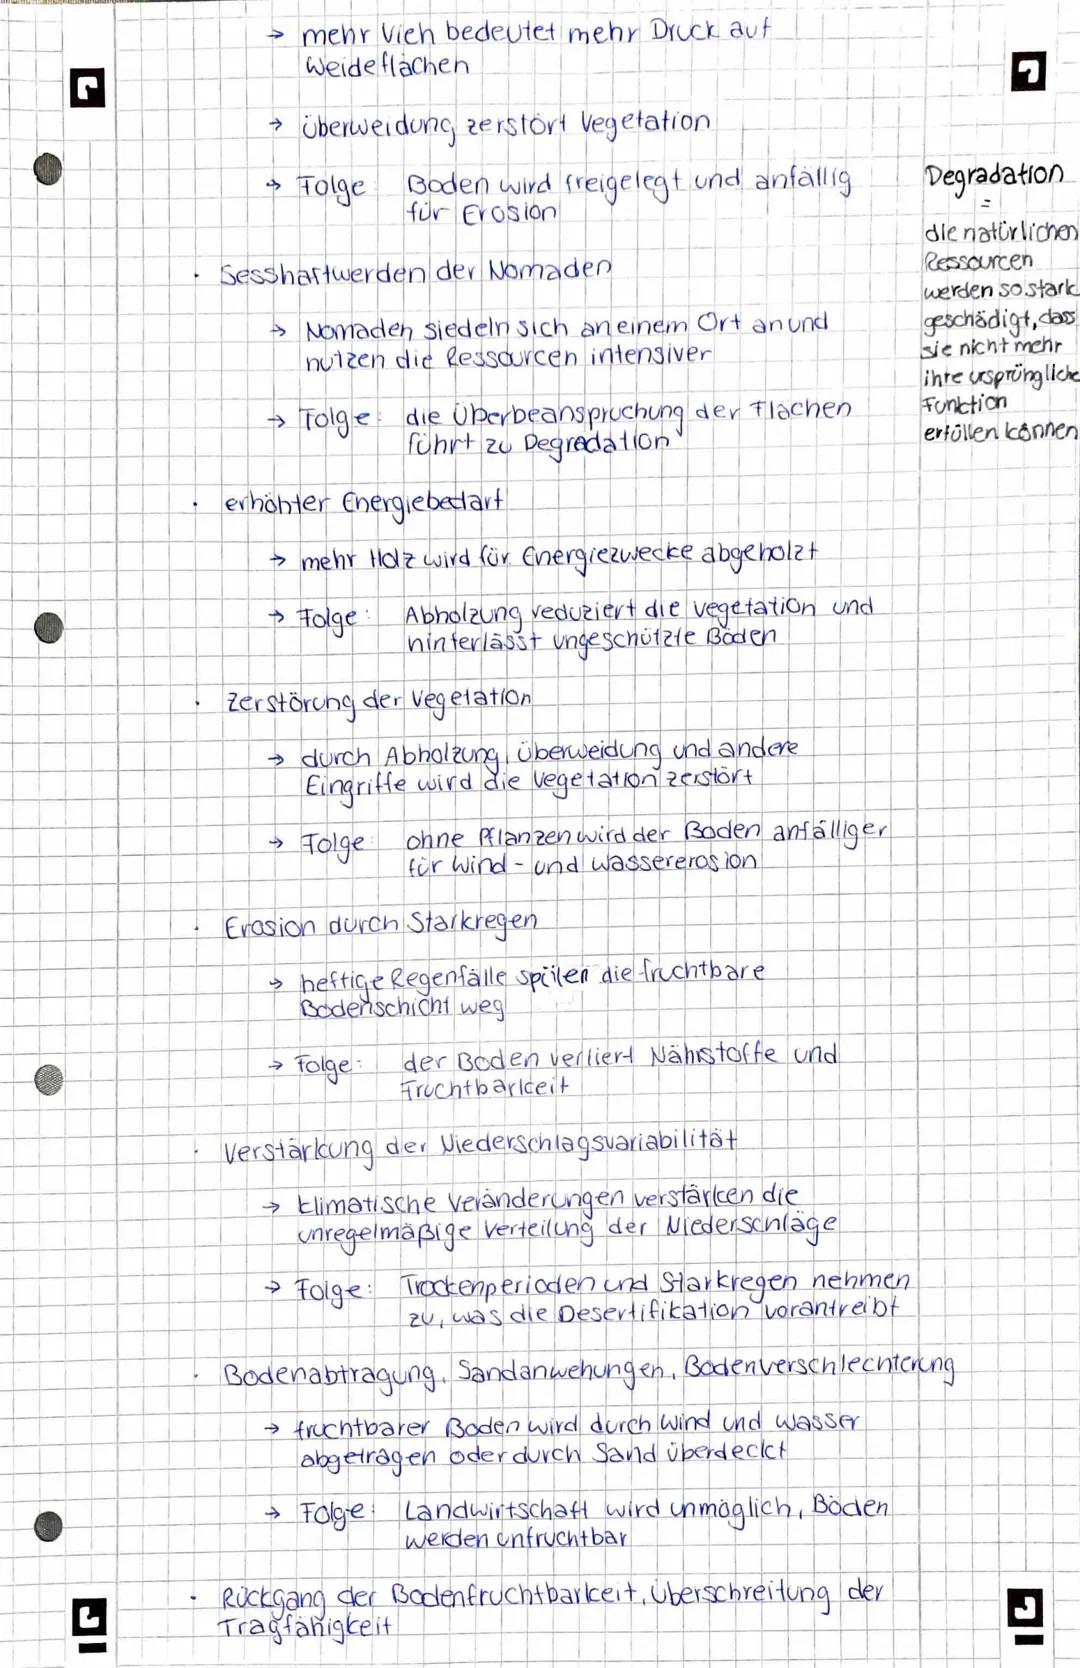 → mehr Vieh bedeutet mehr Druck auf
Weideflächen
→ Überweidung zerstört Vegetation
→ Folge Boden wird freigelegt und anfällig
für Erosion
· Sesshaftwerden der Nomaden
→ Nomaden siedeln sich an einem Ort an und
nutzen die Ressourcen intensiver
→ Folge: die Überbeanspruchung der Flächen
führt zu Degradation
Degradation
=
die natürlichen
Ressourcen
werden so stark
geschädigt, dass
sie nicht mehr
ihre ursprüngliche
Funktion
erfüllen können
· erhöhter Energiebedarf
→ mehr Holz wird für Energiezwecke abgeholzt
→ Folge: Abholzung reduziert die Vegetation und
hinterlässt ungeschützte Böden
· Zerstörung der Vegetation
→ durch Abholzung, Überweidung und andere
Eingriffe wird die Vegetation zerstört
→ Folge: ohne Pflanzen wird der Boden anfälliger
für Wind- und Wassererosion
· Erosion durch Starkregen
→ heftige Regenfälle spülen die fruchtbare
Bodenschicht weg
→ Folge: der Boden verliert Nährstoffe und
Fruchtbarkeit
· Verstärkung der Niederschlagsvariabilität
→ klimatische Veränderungen verstärken die
unregelmäßige Verteilung der Niederschläge
→ Folge: Trockenperioden und Starkregen nehmen
zu, was die Desertifikation vorantreibt
· Bodenabtragung, Sandanwehungen, Bodenverschlechterung
→ fruchtbarer Boden wird durch Wind und Wasser
abgetragen oder durch Sand überdeckt
→ Folge: Landwirtschaft wird unmöglich, Böden
werden unfruchtbar
· Rückgang der Bodenfruchtbarkeit, Überschreitung der
Tragfähigkeit